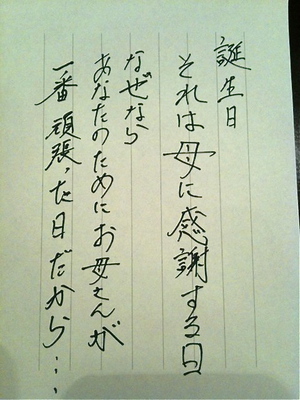 誕生日
それは母に感謝する日
なぜなら
あなたのためにお母さんが
一番頑張った日だから…